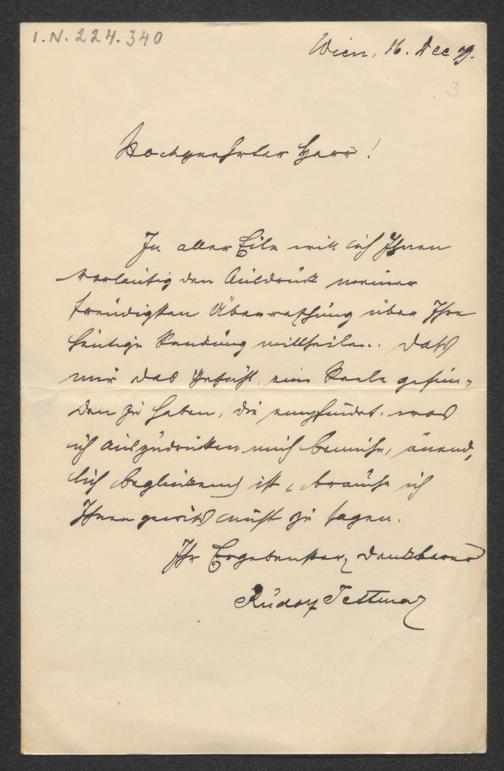 I.N. 224.340
Wien, 16. Dec 99.
3
Hochgeehrter Herr!
In aller Eile will ich Ihnen
vorläufig den Ausdruck meiner
freudigsten Überraschung über Ihre
heutige Sendung mittheilen. Daß
mir das Gefühl, eine Seele gefun-
den zu haben, die empfindet, was
ich auszudrücken mich bemühe, unend-
lich beglückend ist, brauche ich
Ihnen gewiß nicht zu sagen.
Ihr Ergebenster, dankbarer
Rudolf Tettmar